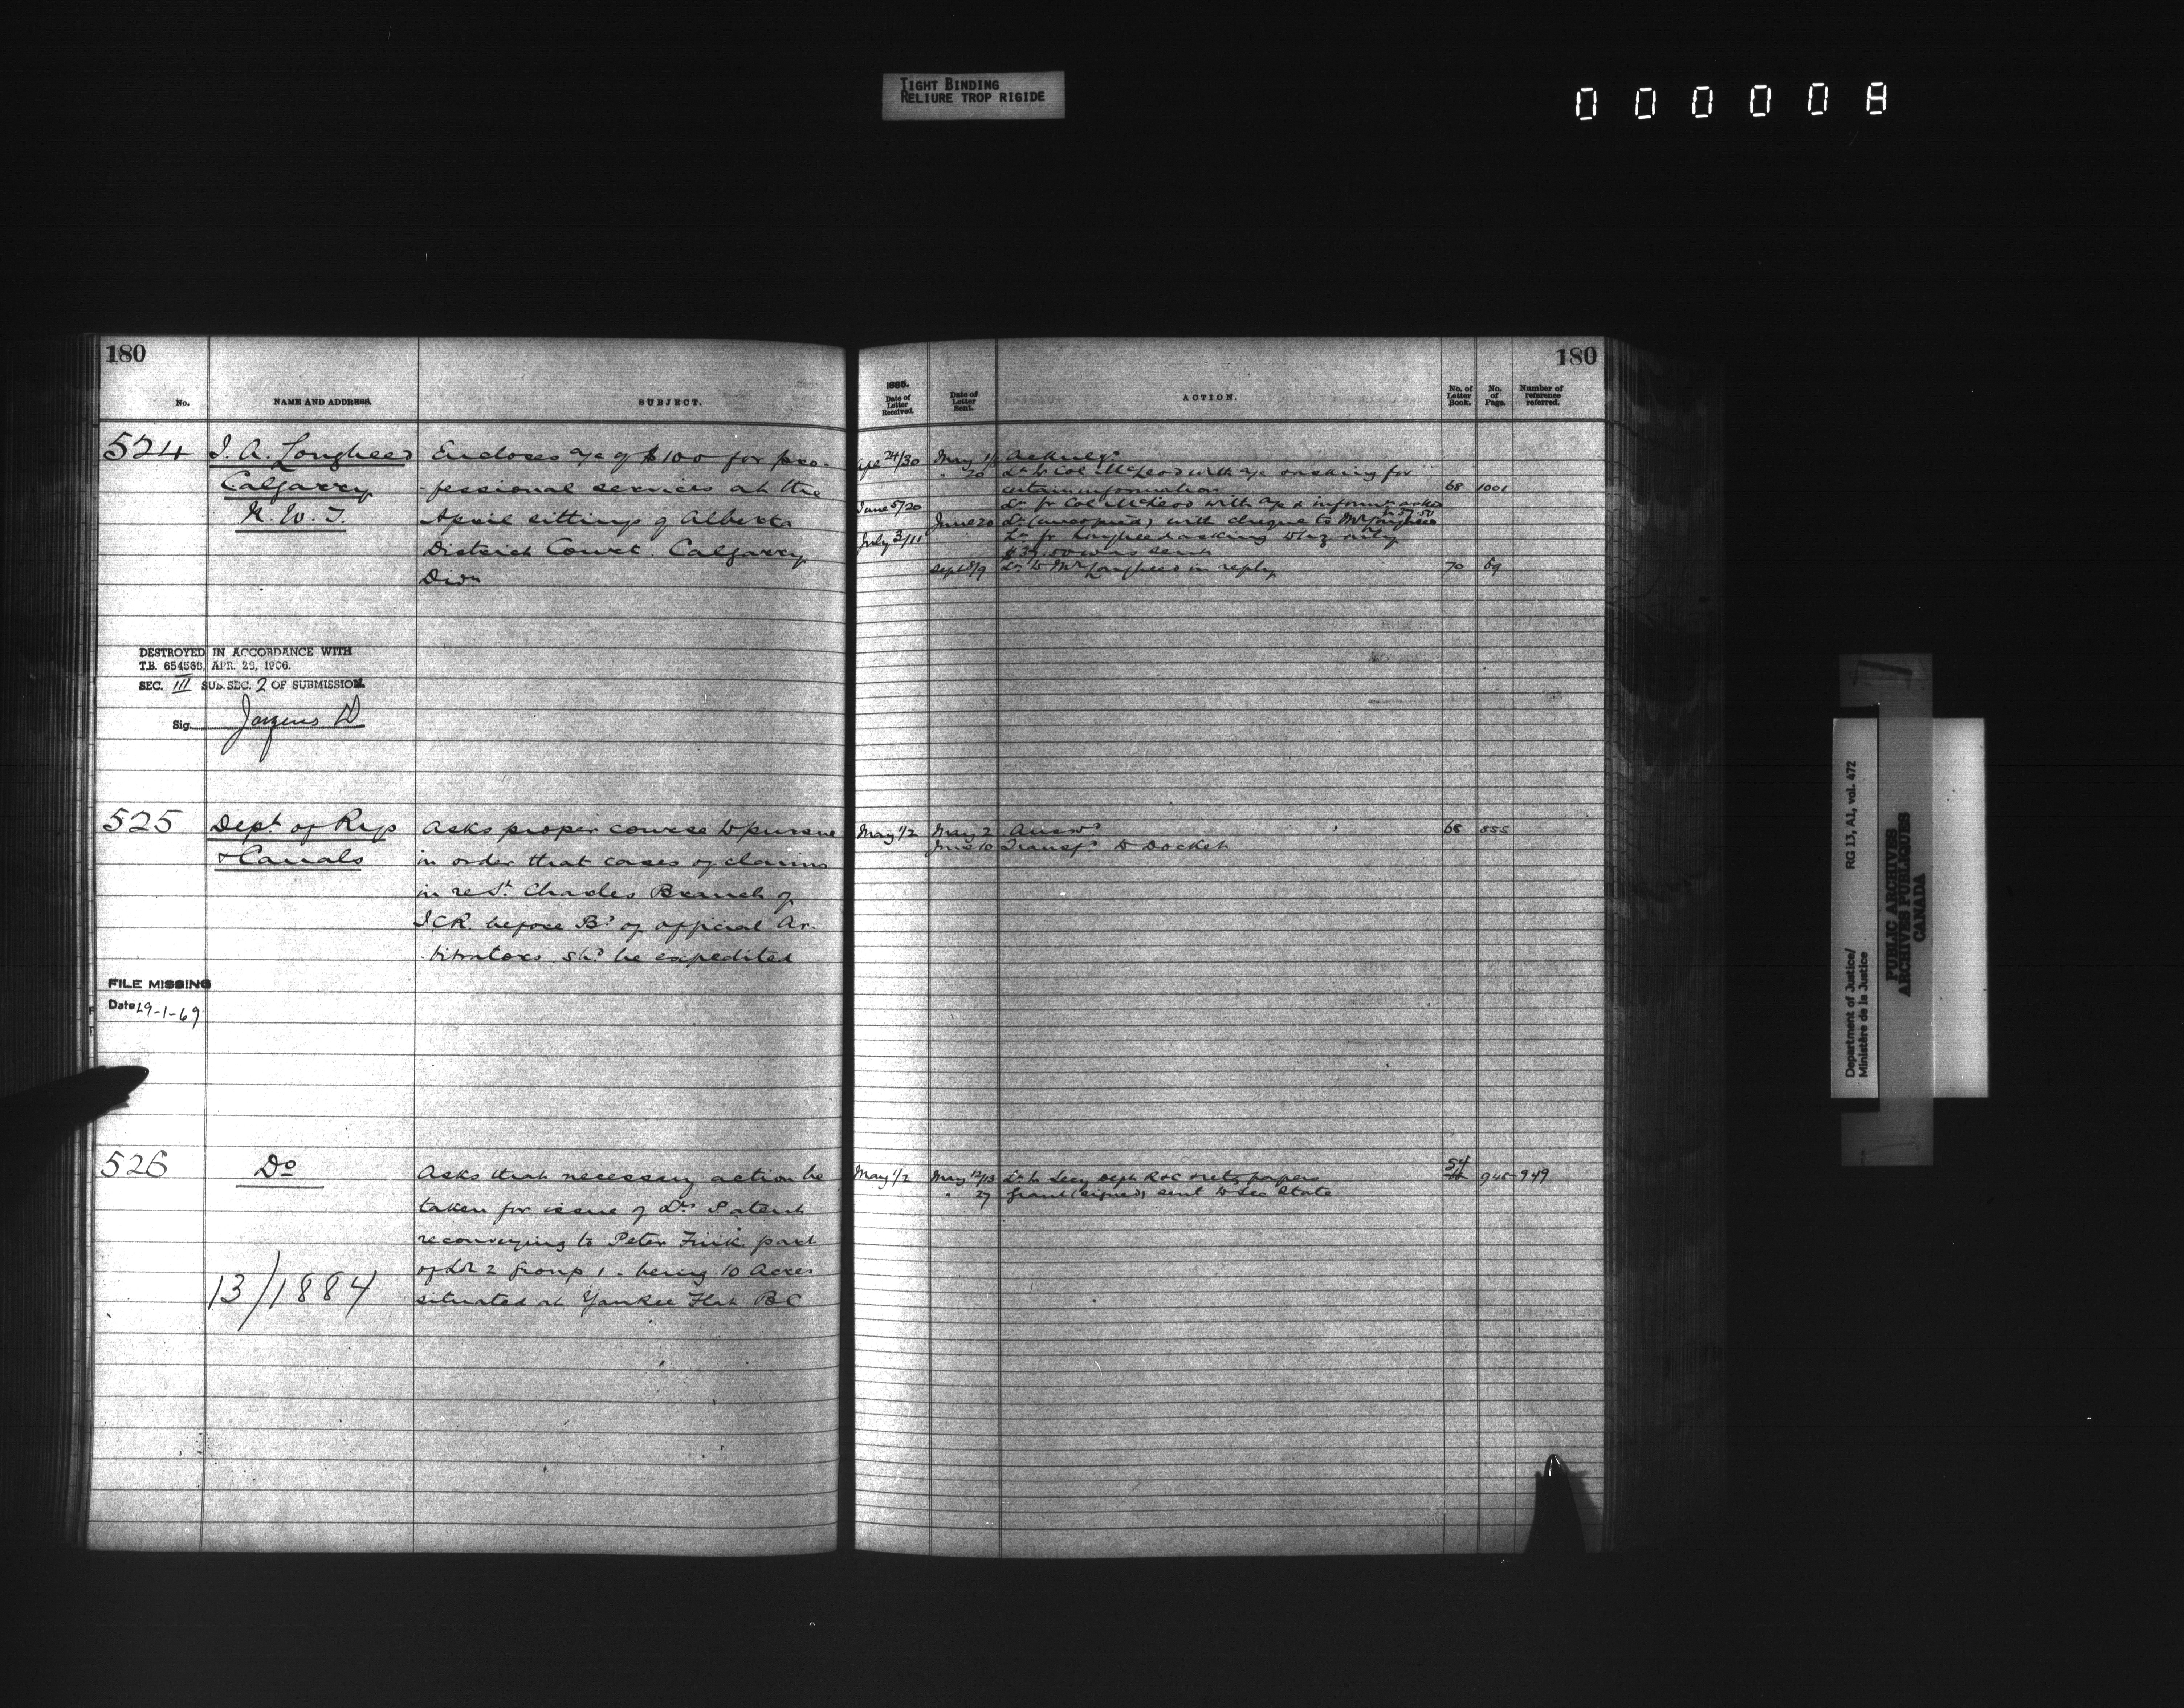 TIGHT BINDING
RELIURE TROP RIGIDE
000008
180
No.
NAME AND ADDRESS.
SUBJECT.
524
J. A. Longheed
Calgarry
N. W. T.
Encloses a/c of $100 for pro-
-fessional services at the
April sittings of Alberta
District Court Calgarry
Divn
DESTROYED IN ACCORDANCE WITH
T.B. 654568, APR. 28, 1966.
SEC. III SUB. SEC. 2 OF SUBMISSION.
Sig.
525
Dept of Rys
& Canals
Asks proper course to pursue
in order that cases of claims
in re St. Charles Branch of
ICR. before Bd of official Ar-
-bitrators shd be expedited
FILE MISSING
Date 29-1-69
526
Do
13/1884
Asks that necessary action be
taken for issue of Lrs Patent
reconveying to Peter Fink part
of Lot 2 Group 1 - being 10 Acres
situated at Yankee Flat BC
180
1885.
Date of Letter Received.
Date of Letter Sent.
ACTION.
No. of Letter Book.
No. of Page.
Number of reference referred.
Apl 24/30 May 1 Acknlgd
" 20 Lr to Col McLeod with a/c & asking for
certain information 68 1001
June 5/20 Lr fr Col McLeod with a/c & informn asked
June 20 Lr (uncopied) with cheque to Mr Longheed
July 3/11 Lr fr Longheed asking why only
was sent
Sept 8/9 Lr to Mr Longheed in reply 70 69
May 1/2 May 2 Answd 68 855
June 10 Transfd to Docket
May 1/2 May 12/13 Lr to Secy Dept R&C & retg papers 54 945-949
" 27 Grant (signed) sent to Sec State
Department of Justice/
Ministère de la Justice
RG 13, A1, vol. 472
PUBLIC ARCHIVES
ARCHIVES PUBLIQUES
CANADA